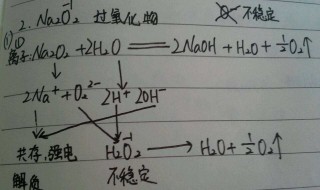 2. Na₂O₂⁻¹ 过氧化物 不稳定
(1) ① 离子: Na₂O₂ + 2H₂O ══ 2NaOH + H₂O + ½O₂↑
2Na⁺ + O₂²⁻ 2H⁺ 2OH⁻
共存,强电 H₂O₂⁻¹ → H₂O + ½O₂↑
解质 不稳定